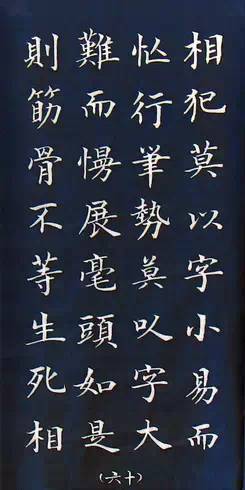 相犯莫以字小易而
忙行筆勢莫以字大
難而慢展毫頭如是
則筋骨不等生死相
（六十）